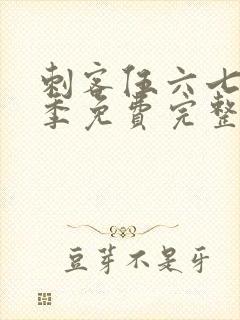 刺客伍六七
季免費完整
豆芽不是牙